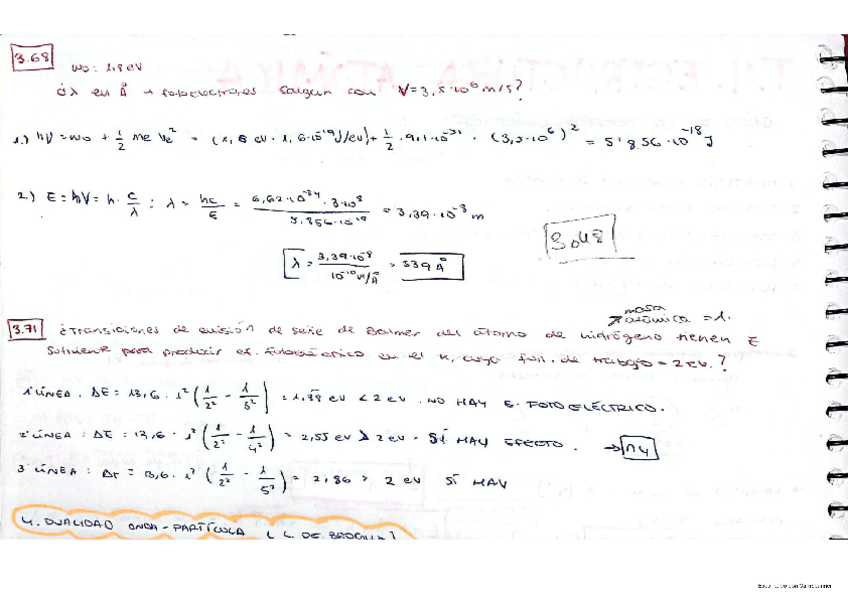 3.68
W₀: 1,8 eV
¿λ en Å → fotoelectrones salgan con V=3,5·10⁶ m/s?
1.) hν = W₀ + 1/2 me Ve² = (1,8 eV · 1,6·10⁻¹⁹ J/eV) + 1/2 · 9,1·10⁻³¹ · (3,5·10⁶)² = 5'856·10⁻¹⁸ J
2.) E = hν = h · c/λ ; λ = hc/E = 6,62·10⁻³⁴ · 3·10⁸ / 5,856·10⁻¹⁸ = 3,39·10⁻⁸ m
λ = 3,39·10⁻⁸ / 10⁻¹⁰ m/Å = 339 Å
masa
atómica = 1.
3.71 ¿Transiciones de emisión de serie de Balmer del átomo de hidrógeno tienen E
suficiente para producir ef. fotoeléctrico en el K, cuya fun. de trabajo = 2 eV.?
1ª LÍNEA. ΔE = 13,6 · 1² (1/2² - 1/3²) = 1,88 eV < 2 eV. NO HAY E. FOTOELÉCTRICO.
2ª LÍNEA: ΔE = 13,6 · 1² (1/2² - 1/4²) = 2,55 eV > 2 eV. SÍ HAY EFECTO. → n4
3ª LÍNEA: ΔE = 13,6 · 1² (1/2² - 1/5²) = 2,86 > 2 eV SÍ HAY
4. DUALIDAD ONDA-PARTÍCULA (L. DE BROGLIE)